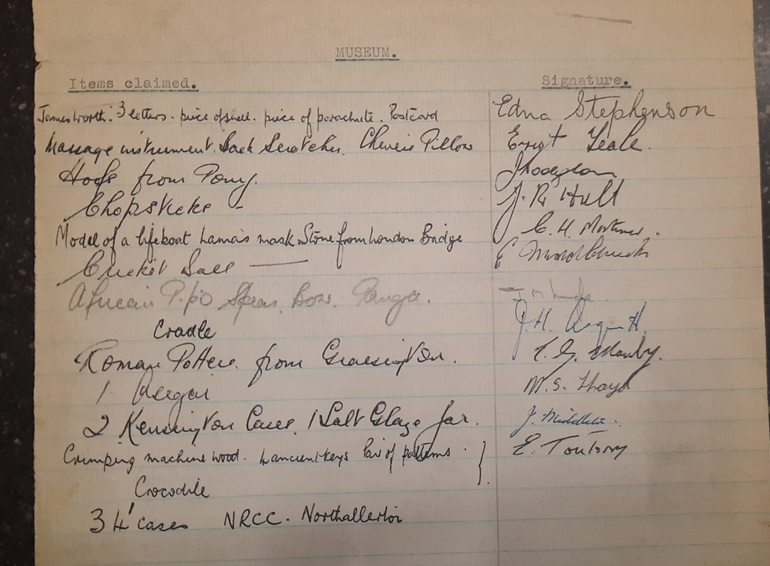 MUSEUM.
Items claimed. Signature.
James worth. 3 letters. piece of shell. piece of parachute. Postcard Edna Stephenson
Massage instrument. Back Scratcher. Chinese Pillow Ernest Teale.
Hoofs from Pony. J Hodgson
Chopsticks - J. R. Hull
Model of a lifeboat Lama's mask Stone from London Bridge C. H. Mortimer.
Cricket Ball — E
African Spear. Bow. Panga.
Cradle J. H.
Roman Pottery from Grassington.
1 Assegai M. S.
2 Kensington Cases. 1 Salt Glaze Jar. J. Middleton.
Crimping machine wood. ancient keys Pair of pattens. E. Toulson
Crocodile
3 4' cases NRCC. Northallerton